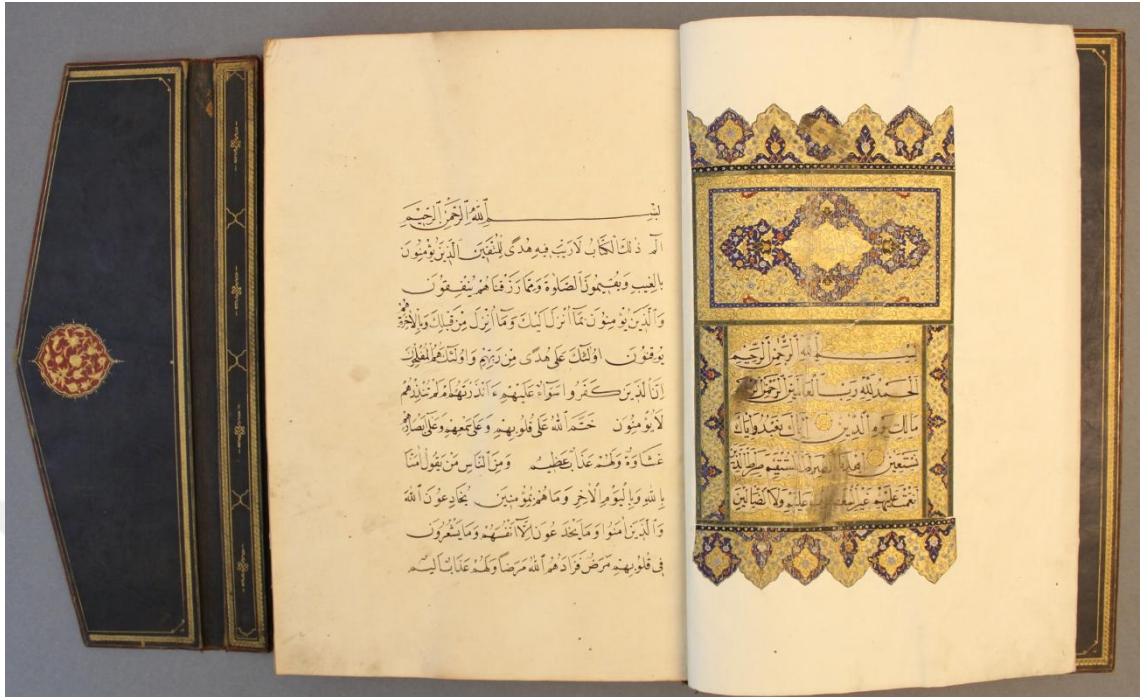 بِسْمِ ٱللَّهِ ٱلرَّحْمٰنِ ٱلرَّحِيْمِ
اَلْحَمْدُ لِلّٰهِ رَبِّ ٱلْعَالَمِيْنَ ٱلرَّحْمٰنِ ٱلرَّحِيْمِ
مَالِكِ يَوْمِ ٱلدِّيْنِ اِيَّاكَ نَعْبُدُ وَاِيَّاكَ
نَسْتَعِيْنُ اِهْدِنَا ٱلصِّرَاطَ ٱلْمُسْتَقِيْمَ صِرَاطَ ٱلَّذِيْنَ
اَنْعَمْتَ عَلَيْهِمْ غَيْرِ ٱلْمَغْضُوْبِ عَلَيْهِمْ وَلَا ٱلضَّالِّيْنَ
بِسْمِ ٱللَّهِ ٱلرَّحْمٰنِ ٱلرَّحِيْمِ
الٓمٓ ذٰلِكَ ٱلْكِتَابُ لَا رَيْبَ فِيْهِ هُدًى لِلْمُتَّقِيْنَ ٱلَّذِيْنَ يُؤْمِنُوْنَ
بِالْغَيْبِ وَيُقِيْمُوْنَ ٱلصَّلٰوةَ وَمِمَّا رَزَقْنَاهُمْ يُنْفِقُوْنَ
وَٱلَّذِيْنَ يُؤْمِنُوْنَ بِمَٓا اُنْزِلَ اِلَيْكَ وَمَٓا اُنْزِلَ مِنْ قَبْلِكَ وَبِالْاٰخِرَةِ هُمْ
يُوْقِنُوْنَ اُولٰٓئِكَ عَلٰى هُدًى مِنْ رَبِّهِمْ وَاُولٰٓئِكَ هُمُ ٱلْمُفْلِحُوْنَ
اِنَّ ٱلَّذِيْنَ كَفَرُوا سَوَٓاءٌ عَلَيْهِمْ ءَاَنْذَرْتَهُمْ اَمْ لَمْ تُنْذِرْهُمْ
لَا يُؤْمِنُوْنَ خَتَمَ ٱللَّهُ عَلٰى قُلُوْبِهِمْ وَعَلٰى سَمْعِهِمْ وَعَلٰٓى اَبْصَارِهِمْ
غِشَاوَةٌ وَلَهُمْ عَذَابٌ عَظِيْمٌ وَمِنَ ٱلنَّاسِ مَنْ يَقُوْلُ اٰمَنَّا
بِاللّٰهِ وَبِالْيَوْمِ ٱلْاٰخِرِ وَمَا هُمْ بِمُؤْمِنِيْنَ يُخَادِعُوْنَ ٱللَّهَ
وَٱلَّذِيْنَ اٰمَنُوا وَمَا يَخْدَعُوْنَ اِلَّٓا اَنْفُسَهُمْ وَمَا يَشْعُرُوْنَ
فِي قُلُوْبِهِمْ مَرَضٌ فَزَادَهُمُ ٱللَّهُ مَرَضًا وَلَهُمْ عَذَابٌ اَلِيْمٌ